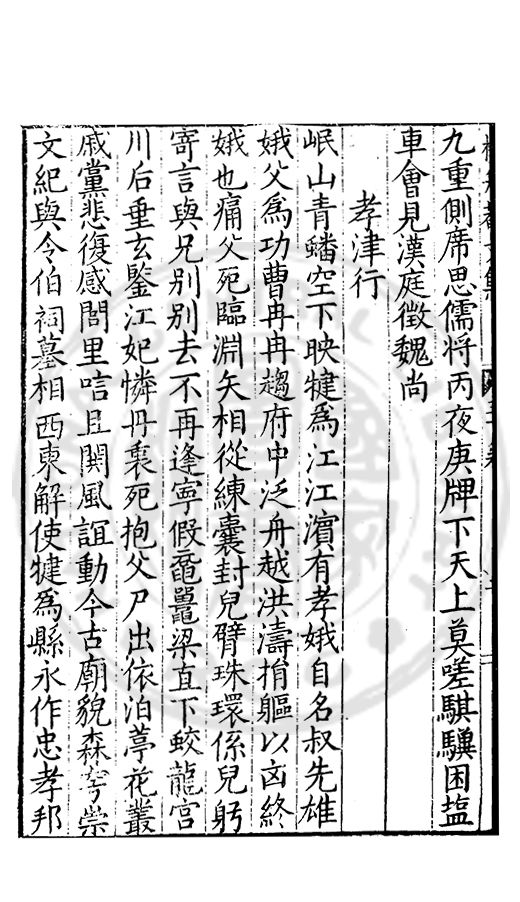 九重側席思儒将丙夜庚牌下天上莫嗟騏驥困塩
車會見漢庭徵魏尚
孝津行
岷山青蟠空下映犍爲江江濵有孝娥自名叔先雄
娥父爲功曹冉冉趨府中泛舟越洪濤捐軀以凶終
娥也痛父死臨淵矢相從練囊封兒臂珠環係兒躬
寄言與兄别别去不再逢寧假黿鼉梁直下蛟龍宮
川后垂玄鑒江妃憐丹衷死抱父尸出依泊葶花叢
戚黨悲復感閭里唁且閧風誼動今古廟貌森穹崇
文紀與令伯祠墓相西東解使犍爲縣永作忠孝邦